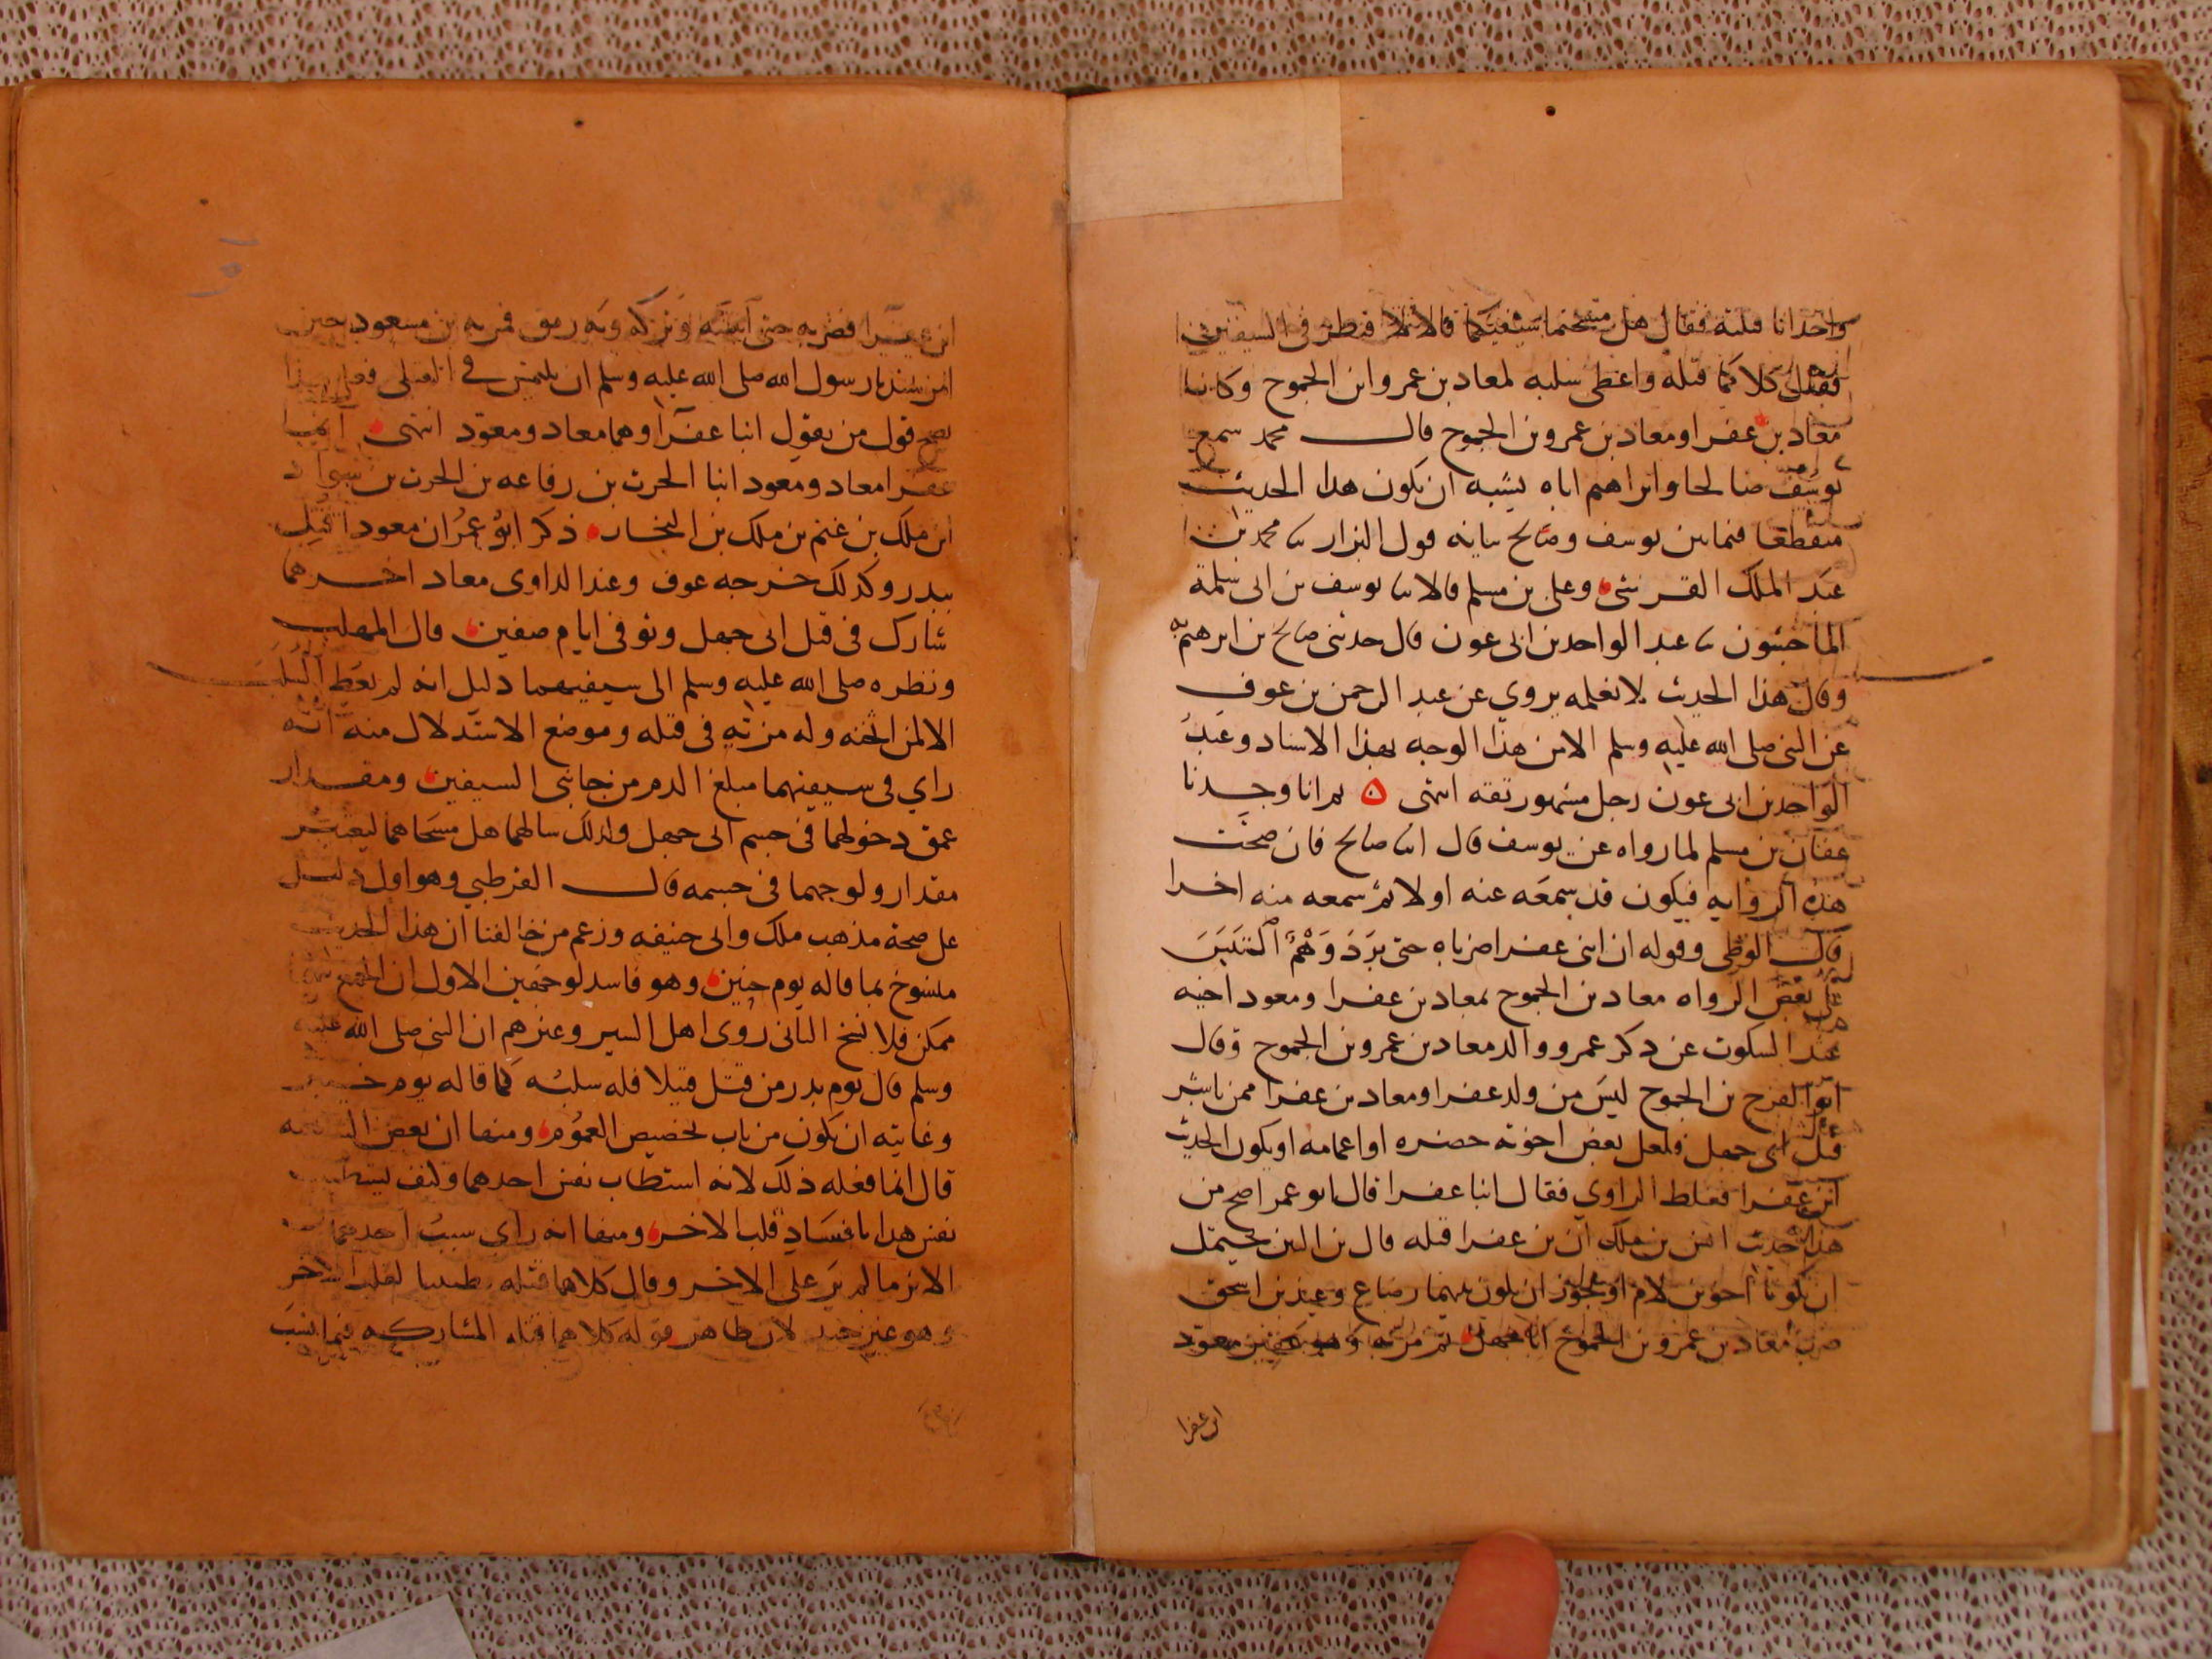 واحد انا قتلته فقال هل مسحتما سيفيكما قالا لا فنظر في السيفين
فقال كلاكما قتله واعطى سلبه لمعاد بن عمرو ابن الجموح وكانا
معاد بن عفرا ومعاد بن عمرو بن الجموح قال محمد سمع
يوسف صالحا وابراهيم اباه يشبه ان يكون هدا الحديث
منقطعا فيما بين يوسف وصالح بيانه قول البزار ثنا محمد بن
عبد الملك القرشي وعلي بن مسلم قالا ثنا يوسف بن ابي سلمة
الماجشون ثنا عبد الواحد بن ابي عون قال حدثني صالح بن ابرهيم به
وقال هذا الحديث لا نعلمه يروي عن عبد الرحمن بن عوف
عن النبي صلى الله عليه وسلم الا من هذا الوجه بهذا الاسناد وعبد
الواحد بن ابي عون رجل مشهور ثقه انتهى ثم انا وجدنا
عفان بن مسلم لما رواه عن يوسف قال انا صالح فان صحت
هذه الروايه فيكون قد سمعه عنه اولا ثم سمعه منه اخرا
قال القرطبي وقوله ان ابني عفرا ضرباه حتى برد وهم التبس
على بعض الرواه معاد بن الجموح بمعاد بن عفرا ومعود اخيه
عند السكوت عن دكر عمرو والد معاد بن عمرو بن الجموح وقال
ابو الفرج بن الجموح ليس من ولد عفرا ومعاد بن عفرا ممن باشر
قتل ابي جهل فلعل بعض اخوته حضره او اعمامه او يكون الحديث
ابن عفرا فغلط الراوي فقال ابنا عفرا قال ابو عمر اصح من
هدا حديث انس بن ملك ان بن عفرا قتله قال بن التين يحتمل
ان يكونا اخوين لام او يجوز ان يكون بينهما رضاع وعند بن اسحق
ضرب معاد بن عمرو بن الجموح ابا جهل ثم مر به وهو عقير معود
ابن عفرا
ابن عفرا فضربه حتى اثبته وتركه وبه رمق فمر به بن مسعود حين
امر رسول الله صلى الله عليه وسلم ان يلتمس في القتلى فعلى هذا
يصح قول من يقول ابنا عفرا وهما معاد ومعود انتهى ابنا
عفرا معاد ومعود ابنا الحرث بن رفاعه بن الحرث بن سواد
ابن ملك بن غنم بن ملك بن النجار ذكر ابو عمر ان معودا قتل
ببدر وكدلك خرجه عوف وعند الداودي معاد اخرهما
شارك في قتل ابي جهل وتوفي ايام صفين قال المهلب
ونظره صلى الله عليه وسلم الى سيفيهما دليل انه لم يعط السلب
الا لمن اثخنه وله مزية في قتله وموضع الاستدلال منه انه
راي في سيفيهما مبلغ الدم من جانبي السيفين ومقدار
عمق دخولهما في جسم ابي جهل ولذلك سالهما هل مسحاهما ليعتبر
مقدار ولوجهما في جسمه قال القرطبي وهو اول دليل
على صحة مذهب ملك وابي حنيفه وزعم من خالفنا ان هذا الحديث
منسوخ بما قاله يوم حنين وهو فاسد لوجهين الاول ان الجمع
ممكن فلا نسخ الثاني روى اهل السير وغيرهم ان النبي صلى الله عليه
وسلم قال يوم بدر من قتل قتيلا فله سلبه كما قاله يوم
وغايته ان يكون من باب تخصيص العموم ومنها ان بعض
قال انما فعله ذلك لانه استطاب نفس احدهما وكيف
نفس هدا بافساد قلب الاخر ومنها انه راى سبب احدهما
الاثر ما لم ير على الاخر وقال كلاهما قتله تطييبا لقلب الاخر
وهو غير جيد لان ظاهر قوله كلاهما قتله المشاركه